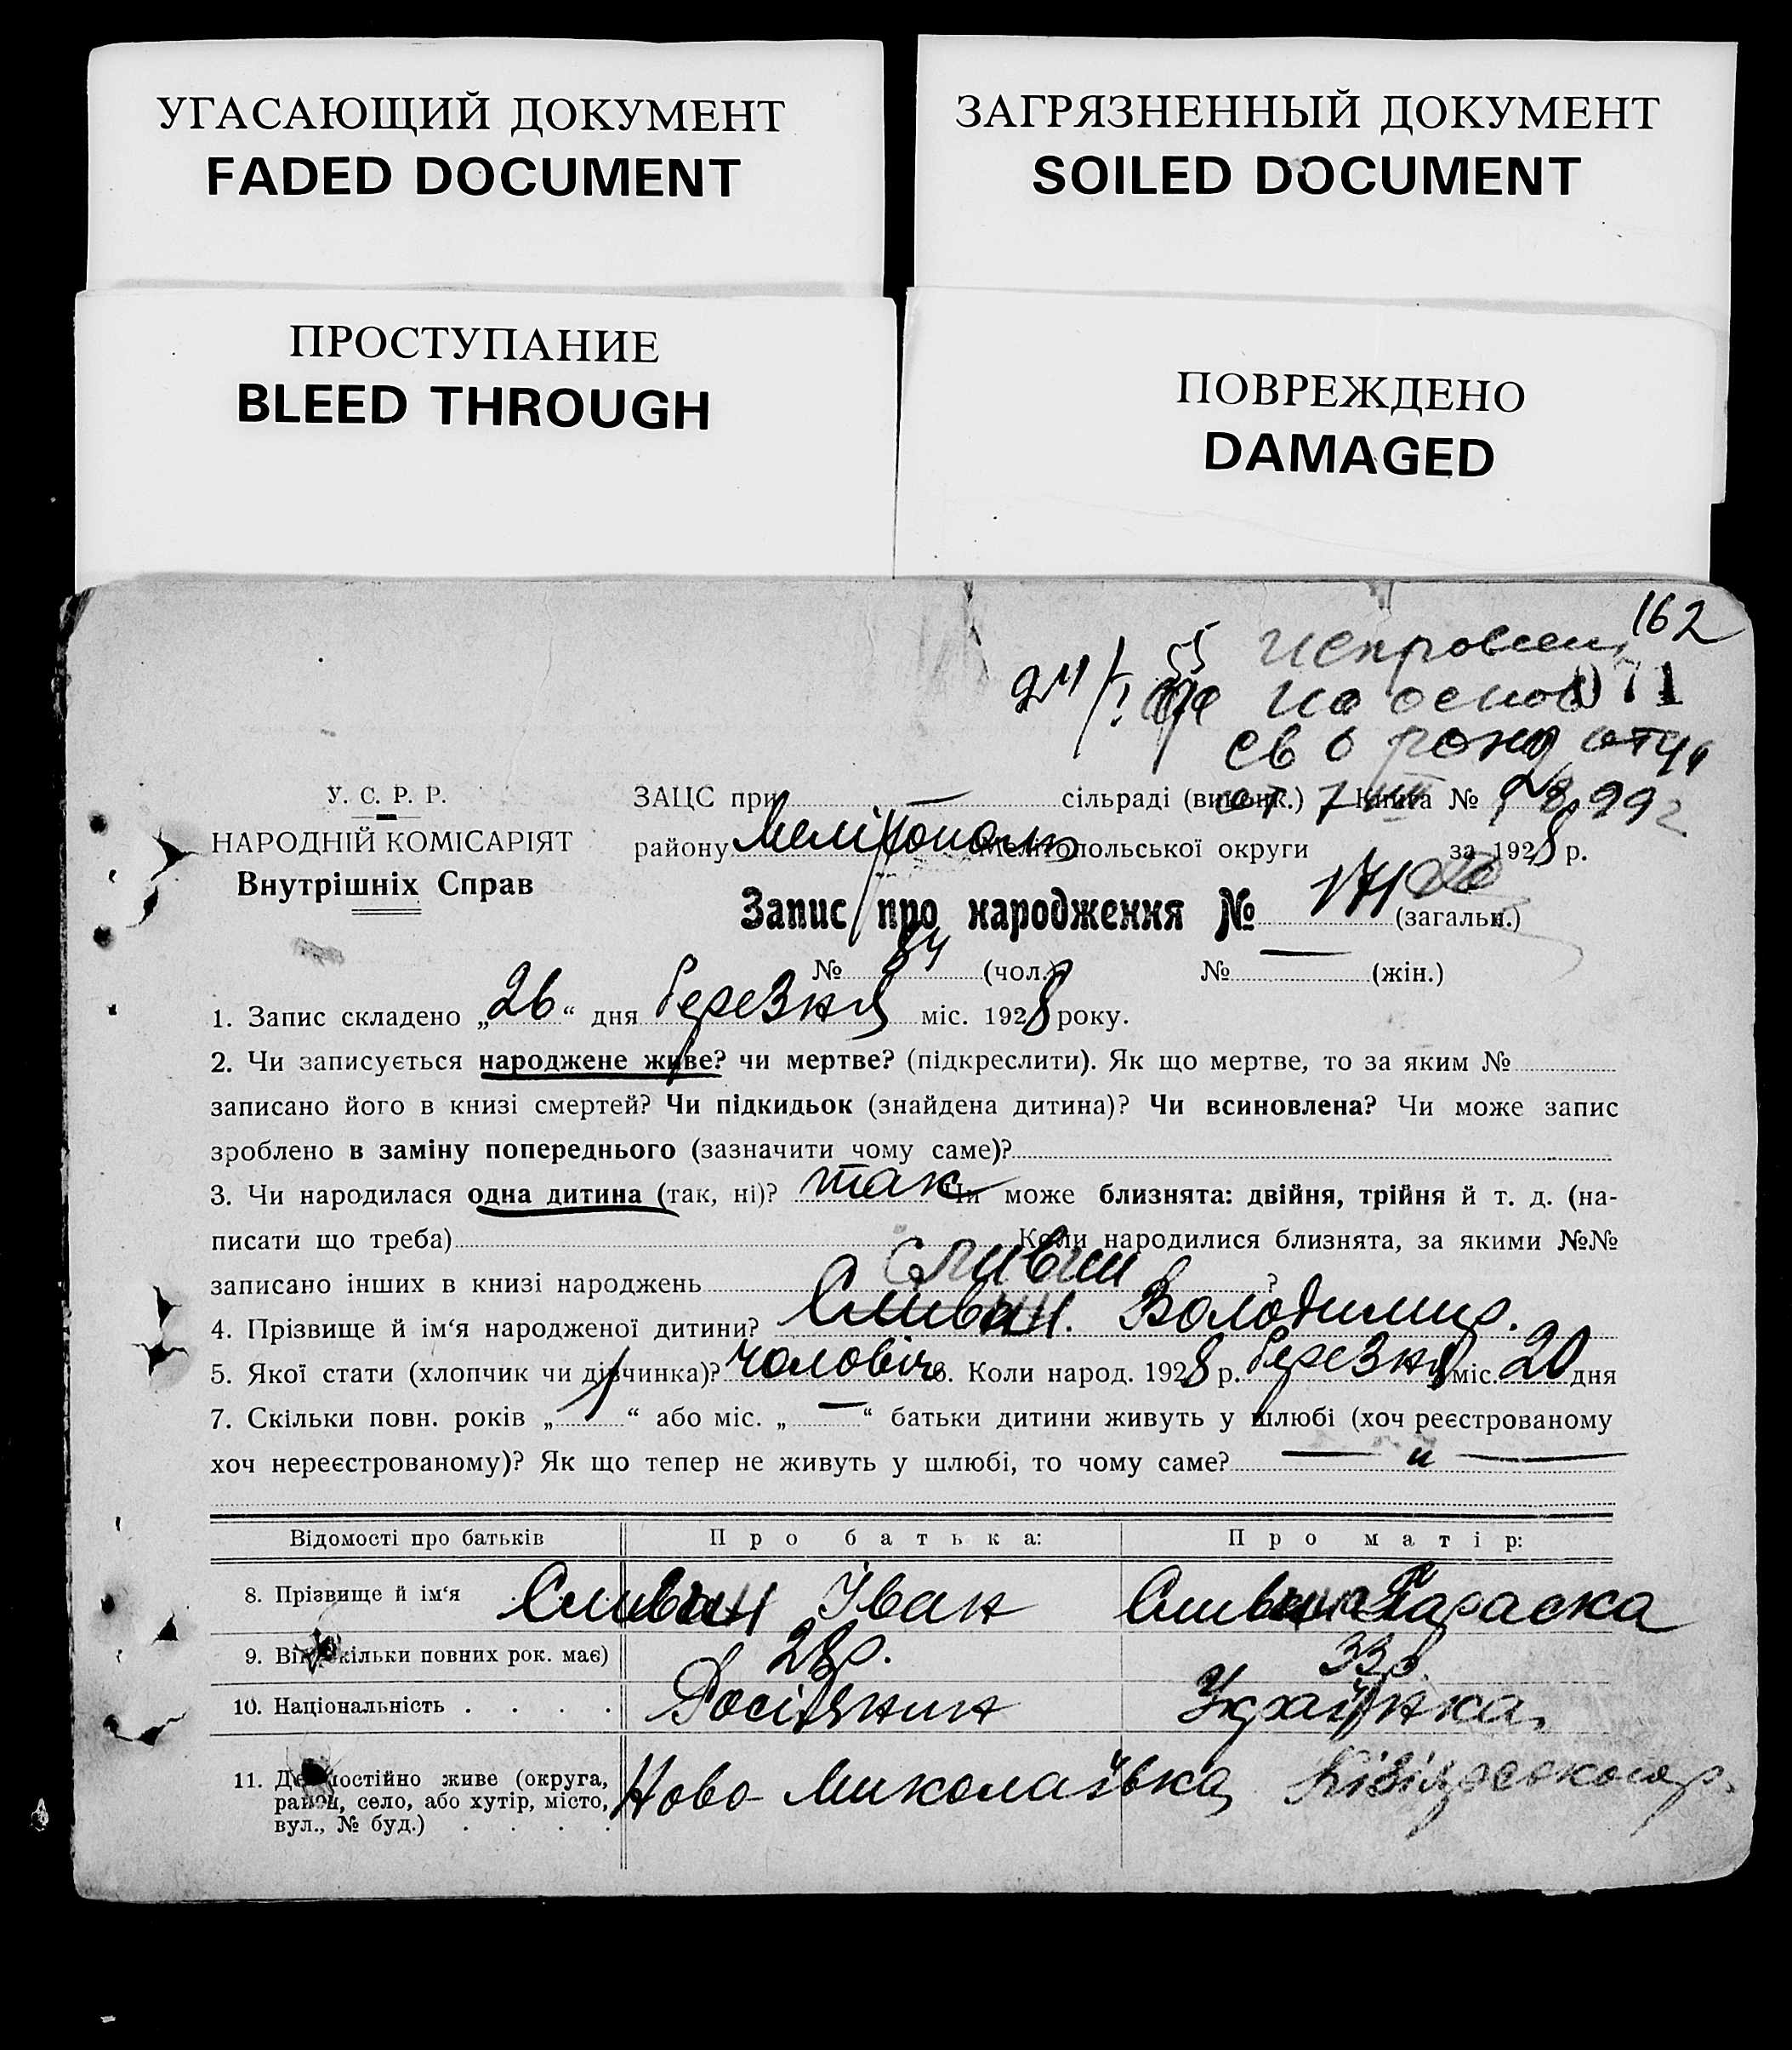 УГАСАЮЩИЙ ДОКУМЕНТ
FADED DOCUMENT
ЗАГРЯЗНЕННЫЙ ДОКУМЕНТ
SOILED DOCUMENT
ПРОСТУПАНИЕ
BLEED THROUGH
ПОВРЕЖДЕНО
DAMAGED
162
на основ
св о рожд отца
У. С. Р. Р.
НАРОДНІЙ КОМІСАРІЯТ
Внутрішніх Справ
ЗАЦС при — сільраді (виконк.) Книга №
району Мелітополь Мелітопольської округи за 1928 р.
Запис про народження № 171 (загальн.)
№ 84 (чол.) № — (жін.)
1. Запис складено „26“ дня березня міс. 1928 року.
2. Чи записується народжене живе? чи мертве? (підкреслити). Як що мертве, то за яким №
записано його в книзі смертей? Чи підкидьок (знайдена дитина)? Чи всиновлена? Чи може запис
зроблено в заміну попереднього (зазначити чому саме)?
3. Чи народилася одна дитина (так, ні)? так Чи може близнята: двійня, трійня й т. д. (на-
писати що треба) Коли народилися близнята, за якими №№
записано інших в книзі народжень ?
4. Прізвище й ім‘я народженої дитини? Володимир.
5. Якої стати (хлопчик чи дівчинка)? чоловіч 6. Коли народ. 1928 р. березня міс. 20 дня
7. Скільки повн. років „1“ або міс. „—“ батьки дитини живуть у шлюбі (хоч реєстрованому
хоч нереєстрованому)? Як що тепер не живуть у шлюбі, то чому саме? — " —
Відомості про батьків Про батька: Про матір:
8. Прізвище й ім‘я Іван Параска
9. Вік (скільки повних рок. має) 28р. 33р.
10. Національність . . . . Росіянин Українка.
11. Де постійно живе (округа,
район, село, або хутір, місто,
вул., № буд.) . . . .
Ново-Миколаївка